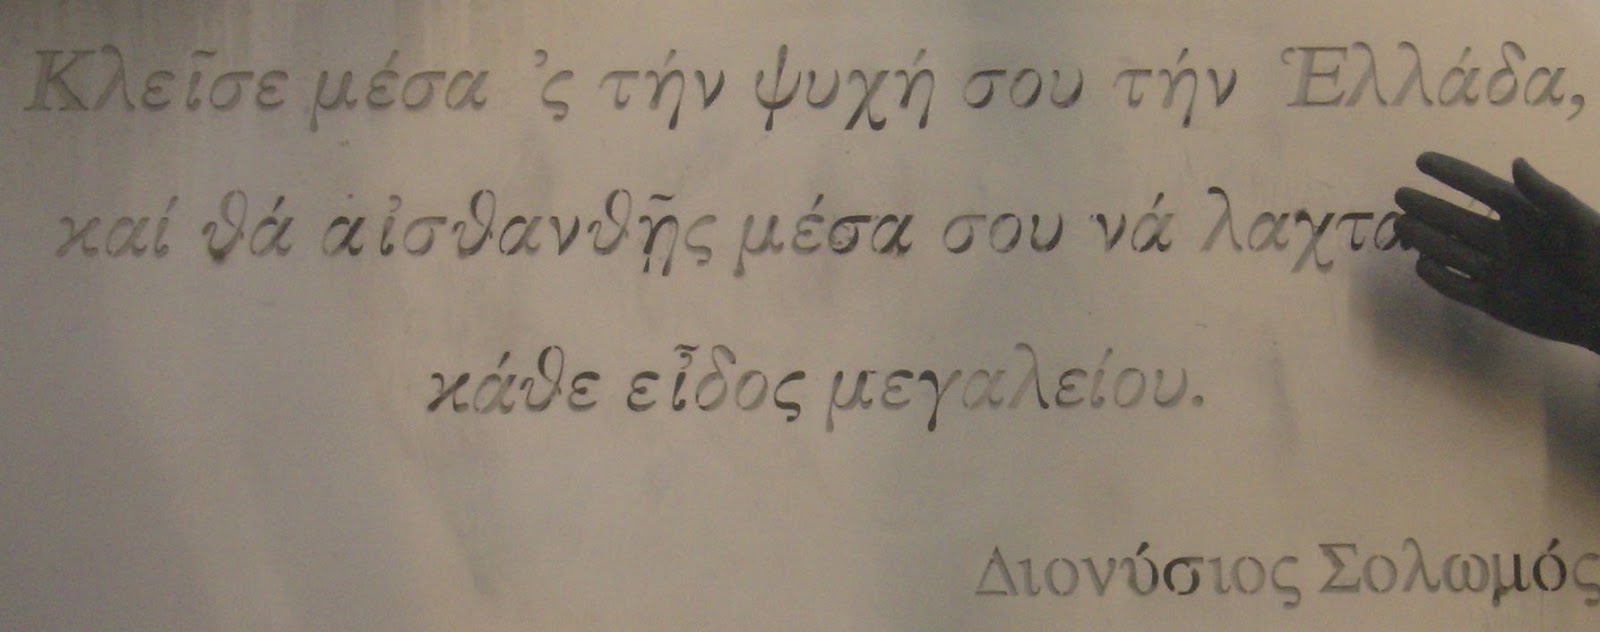 Κλεῖσε μέσα ’ς τήν ψυχή σου τήν Ἑλλάδα,
καί θά αἰσθανθῇς μέσα σου νά
κάθε εἶδος μεγαλείου.
Διονύσιος Σολωμός